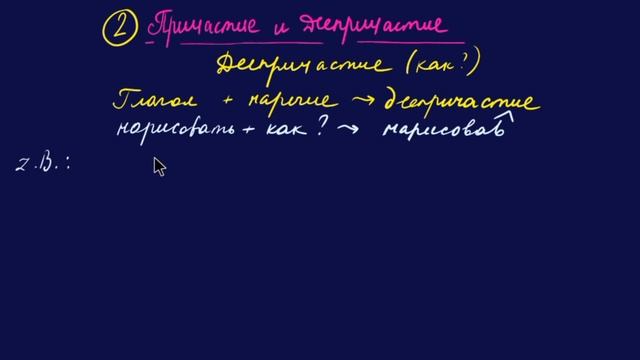 ② Причастие и Деепричастие
Деепричастие (как?)
Глагол + наречие → деепричастие
нарисовать + как? → нарисовав
z.B.: